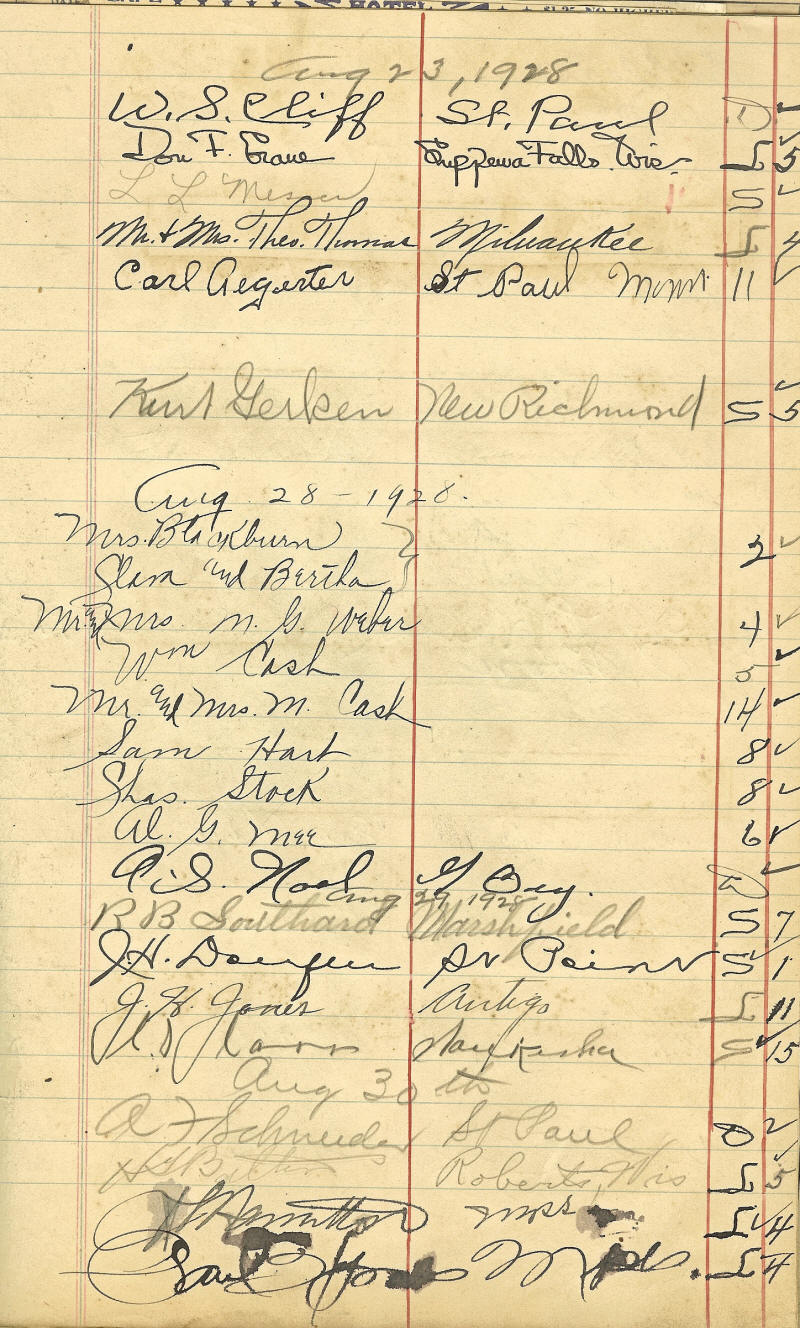 HOTEL
Aug 23, 1928
W. S. Cliff St. Paul D ✓
Don F. Crane Chippewa Falls. Wis. L 5
L L Messer S ✓
Mr. & Mrs. Theo. Thomas Milwaukee L 4
Carl Aegerter St Paul 11 ✓
Kurt Gerken New Richmond S 5
Aug. 28 - 1928.
Mrs. Blackburn } 2 ✓
and Bertha
Mr. and Mrs. N. G. Weber 4 ✓
Wm Cash 5 ✓
Mr. and Mrs. M. Cash 14 ✓
Sam Hart 8 ✓
Chas. Stock 8 ✓
Al. G. Mee 6 ✓
G Bay. ✓
Aug 29, 1928
R B Southard Marshfield S 7
J. H. S 1
J. H. Jones Antigo L 11
Waukesha S 15
Aug 30 th
A F Schneider St Paul D 2
Roberts, Wis L 5
Mpls L 4
Paul Mpls. L 4